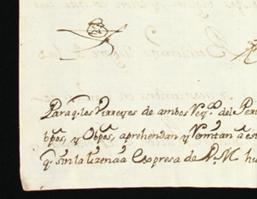 Para q. los Virreyes de ambos Rey.s del Per
tpos, y Obpos, aprehendan y Remitan a est
q. sin la lizenzia Expresa de V. M. hu